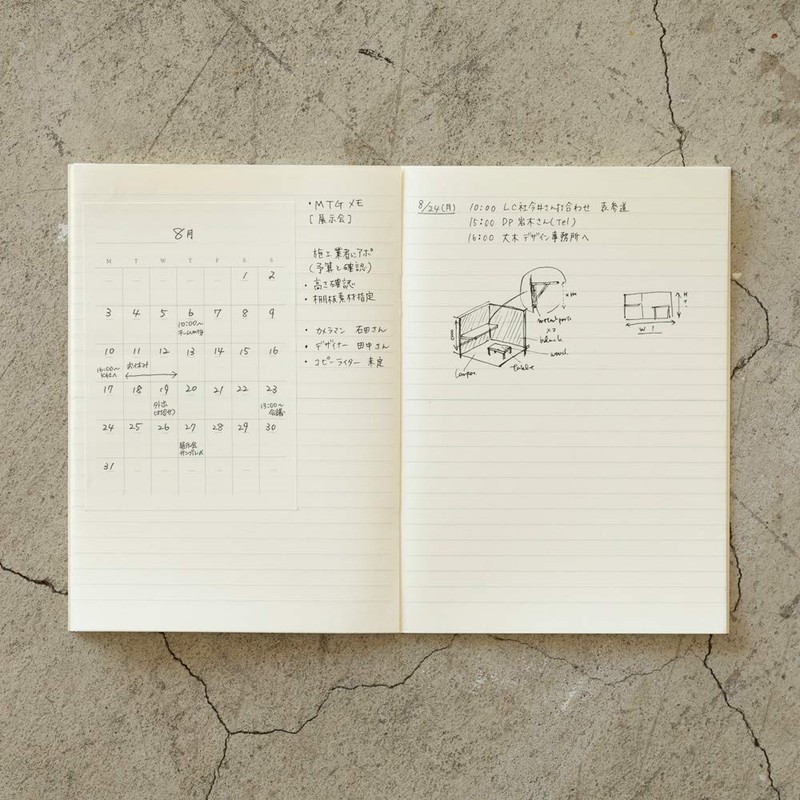 8月
M T W T F S S
1 2
3 4 5 6 7 8 9
10:00〜
10 11 12 13 14 15 16
お休み
17 18 19 20 21 22 23
外出
13:00〜
会議
24 25 26 27 28 29 30
31
・MTG メモ
[展示会]
施工業者にアポ
(予算と確認)
・高さ確認
・棚板素材指定
・カメラマン 石田さん
・デザイナー 田中さん
・コピーライター 未定
8/24(月) 10:00 LC社今井さん打合わせ 表参道
15:00 DP 岩木さん(Tel)
16:00 大木デザイン事務所へ
black
wood
table
W
H